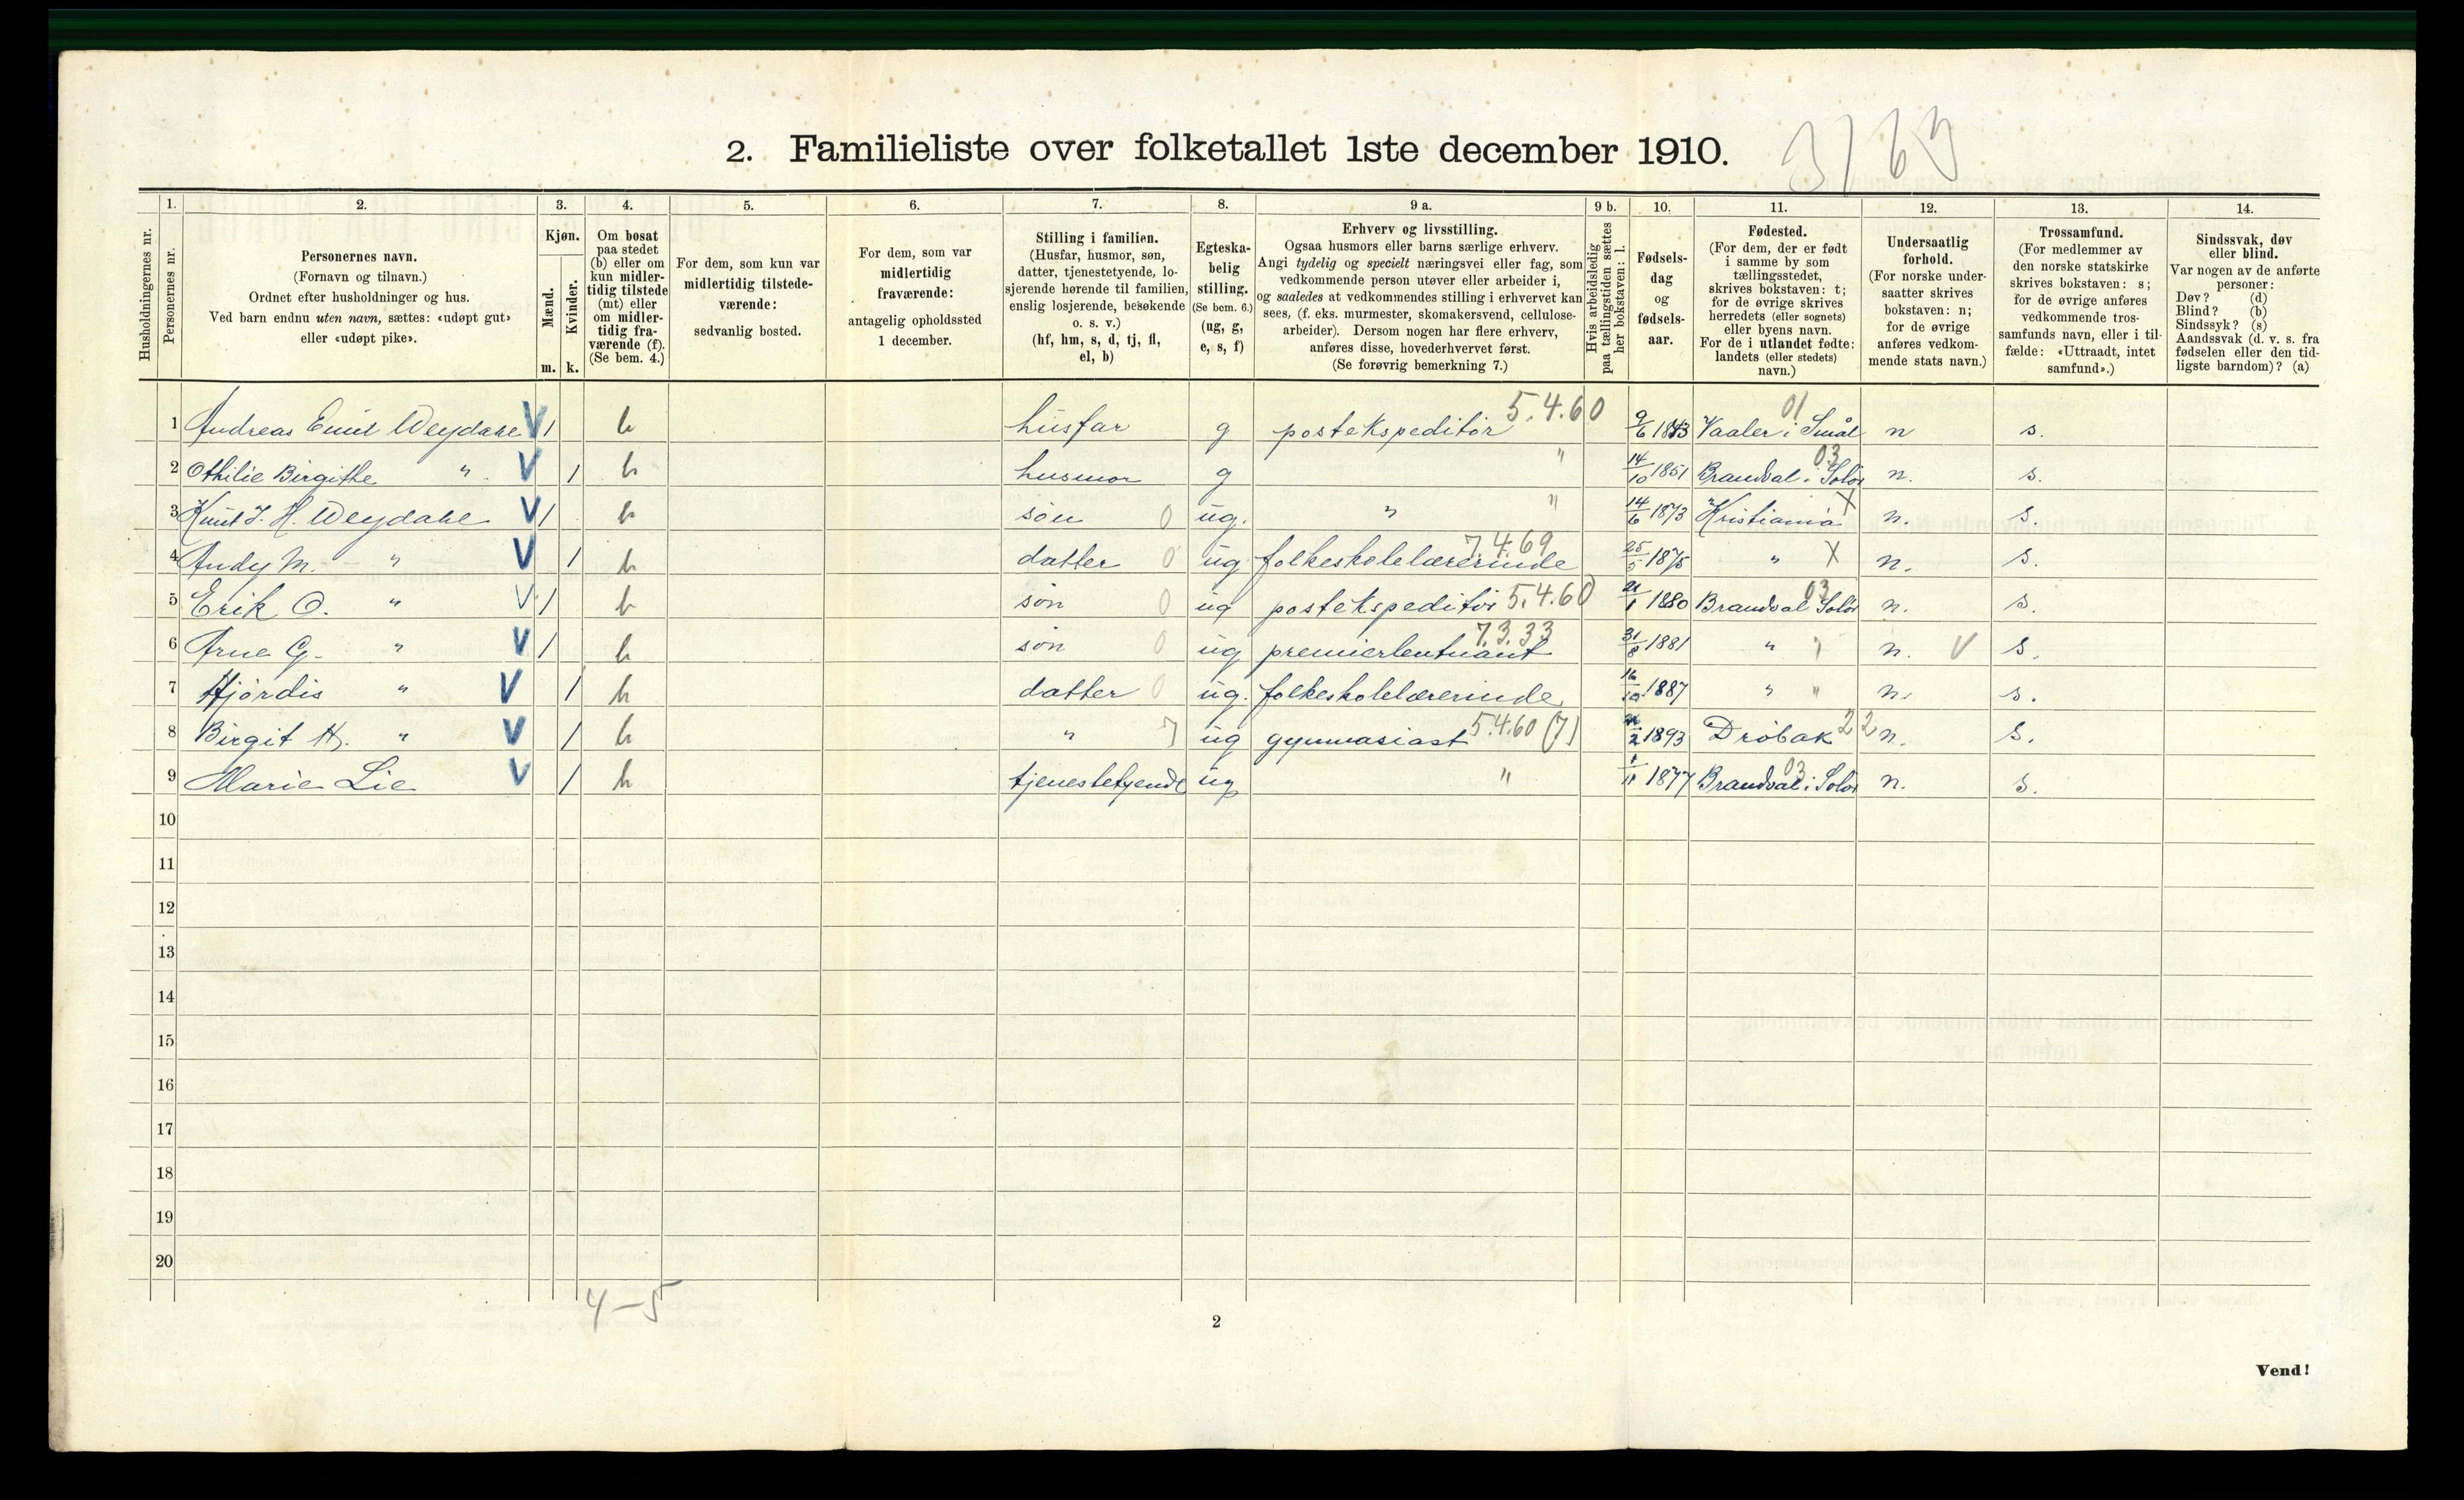 2. Familieliste over folketallet 1ste december 1910.
3163
Husholdningernes nr.
1.
Personernes nr.
2.
Personernes navn.
(Fornavn og tilnavn.)
Ordnet efter husholdninger og hus.
Ved barn endnu uten navn, sættes: «udøpt gut»
eller «udøpt pike».
3.
Kjøn.
Mænd.
Kvinder.
m. k.
4.
Om bosat
paa stedet
(b) eller om
kun midler-
tidig tilstede
(mt) eller
om midler-
tidig fra-
værende (f).
(Se bem. 4.)
5.
For dem, som kun var
midlertidig tilstede-
værende:
sedvanlig bosted.
6.
For dem, som var
midlertidig
fraværende:
antagelig opholdssted
1 december.
7.
Stilling i familien.
(Husfar, husmor, søn,
datter, tjenestetyende, lo-
sjerende hørende til familien,
enslig losjerende, besøkende
o. s. v.)
(hf, hm, s, d, tj, fl,
el, b)
8.
Egteska-
belig
stilling.
(Se bem. 6.)
(ug, g,
e, s, f)
9 a.
Erhverv og livsstilling.
Ogsaa husmors eller barns særlige erhverv.
Angi tydelig og specielt næringsvei eller fag, som
vedkommende person utøver eller arbeider i,
og saaledes at vedkommendes stilling i erhvervet kan
sees, (f. eks. murmester, skomakersvend, cellulose-
arbeider). Dersom nogen har flere erhverv,
anføres disse, hovederhvervet først.
(Se forøvrig bemerkning 7.)
9 b.
Hvis arbeidsledig
paa tællingstiden sættes
her bokstaven: l.
10.
Fødsels-
dag
og
fødsels-
aar.
11.
Fødested.
(For dem, der er født
i samme by som
tællingsstedet,
skrives bokstaven: t;
for de øvrige skrives
herredets (eller sognets)
eller byens navn.
For de i utlandet fødte:
landets (eller stedets)
navn.)
12.
Undersaatlig
forhold.
(For norske under-
saatter skrives
bokstaven: n;
for de øvrige
anføres vedkom-
mende stats navn.)
13.
Trossamfund.
(For medlemmer av
den norske statskirke
skrives bokstaven: s;
for de øvrige anføres
vedkommende tros-
samfunds navn, eller i til-
fælde: «Uttraadt, intet
samfund».)
14.
Sindssvak, døv
eller blind.
Var nogen av de anførte
personer:
Døv? (d)
Blind? (b)
Sindssyk? (s)
Aandssvak (d. v. s. fra
fødselen eller den tid-
ligste barndom)? (a)
1 Andreas Emil Weydahl V 1 b husfar g postekspeditør 5.4.60 9/6 1843 Vaaler i Smål 01 n s.
2 Othilie Birgithe " V 1 b husmor g " 14/10 1851 Brandval i Solør 03 n. s.
3 Knut J. H. Weydahl V 1 b søn 0 ug. " " 14/6 1873 Kristiania X n. s.
4 Andy M. " V 1 b datter 0 ug folkeskolelærerinde 7.4.69 25/5 1875 " X n. s.
5 Erik O. " V 1 b søn 0 ug postekspeditør 5.4.60 21/1 1880 Brandval Solør 03 n. s.
6 Arne G. " V 1 b søn 0 ug premierleutnant 7.3.33 31/8 1881 " " n. V s.
7 Hjørdis " V 1 b datter 0 ug. folkeskolelærerinde 16/10 1887 " " n. s.
8 Birgit H. " V 1 b " 7 ug gymnasiast 5.4.60 (7) /2 1893 Drøbak 22 n. s.
9 Marie Lie V 1 b tjenestetyende ug " 1/11 1877 Brandval i Solør 03 n. s.
10
11
12
13
14
15
16
17
18
19
20
4-5
2
Vend!